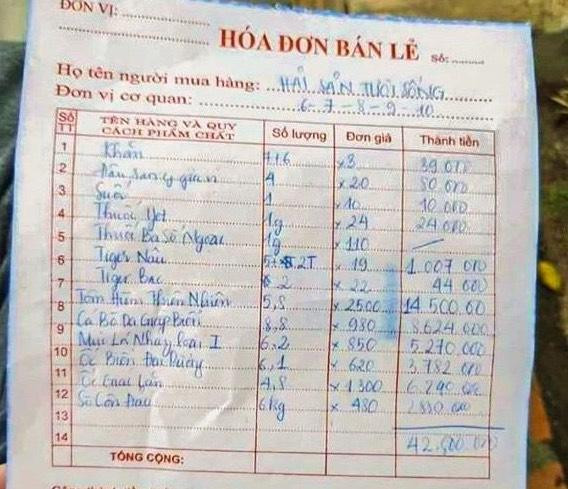 ĐƠN VỊ:
HÓA ĐƠN BÁN LẺ Số:
Họ tên người mua hàng: HẢI SẢN TƯƠI SỐNG
Đơn vị cơ quan: 6-7-8-9-10
Số TT TÊN HÀNG VÀ QUY CÁCH PHẨM CHẤT Số lượng Đơn giá Thành tiền
1 Khăn x 3 39.000
2 4 x 20 80.000
3 Suối 1 x 10 10.000
4 Thuốc 1g x 24 24.000
5 Thuốc Ba Số Ngoại 1g x 110
6 Tiger Nâu 2T x 19 1.007.000
7 Tiger Bạc 2 x 22 44.000
8 Tôm Hùm Thiên Nhiên 5,8 x 2500 14.500.00
9 Cá Bò Da Giáp Biển 8,8 x 980 8.624.000
10 Mực Lá Nháy Loại I 6,2 x 850 5.270.000
11 Ốc Biển Đại Dương 6,1 x 620 3.782.000
12 Ốc Lớn 4,8 x 1300 6.240.000
13 Sò Côn Đảo 6kg x 480 2.880.000
14 42.500.000
TỔNG CỘNG: